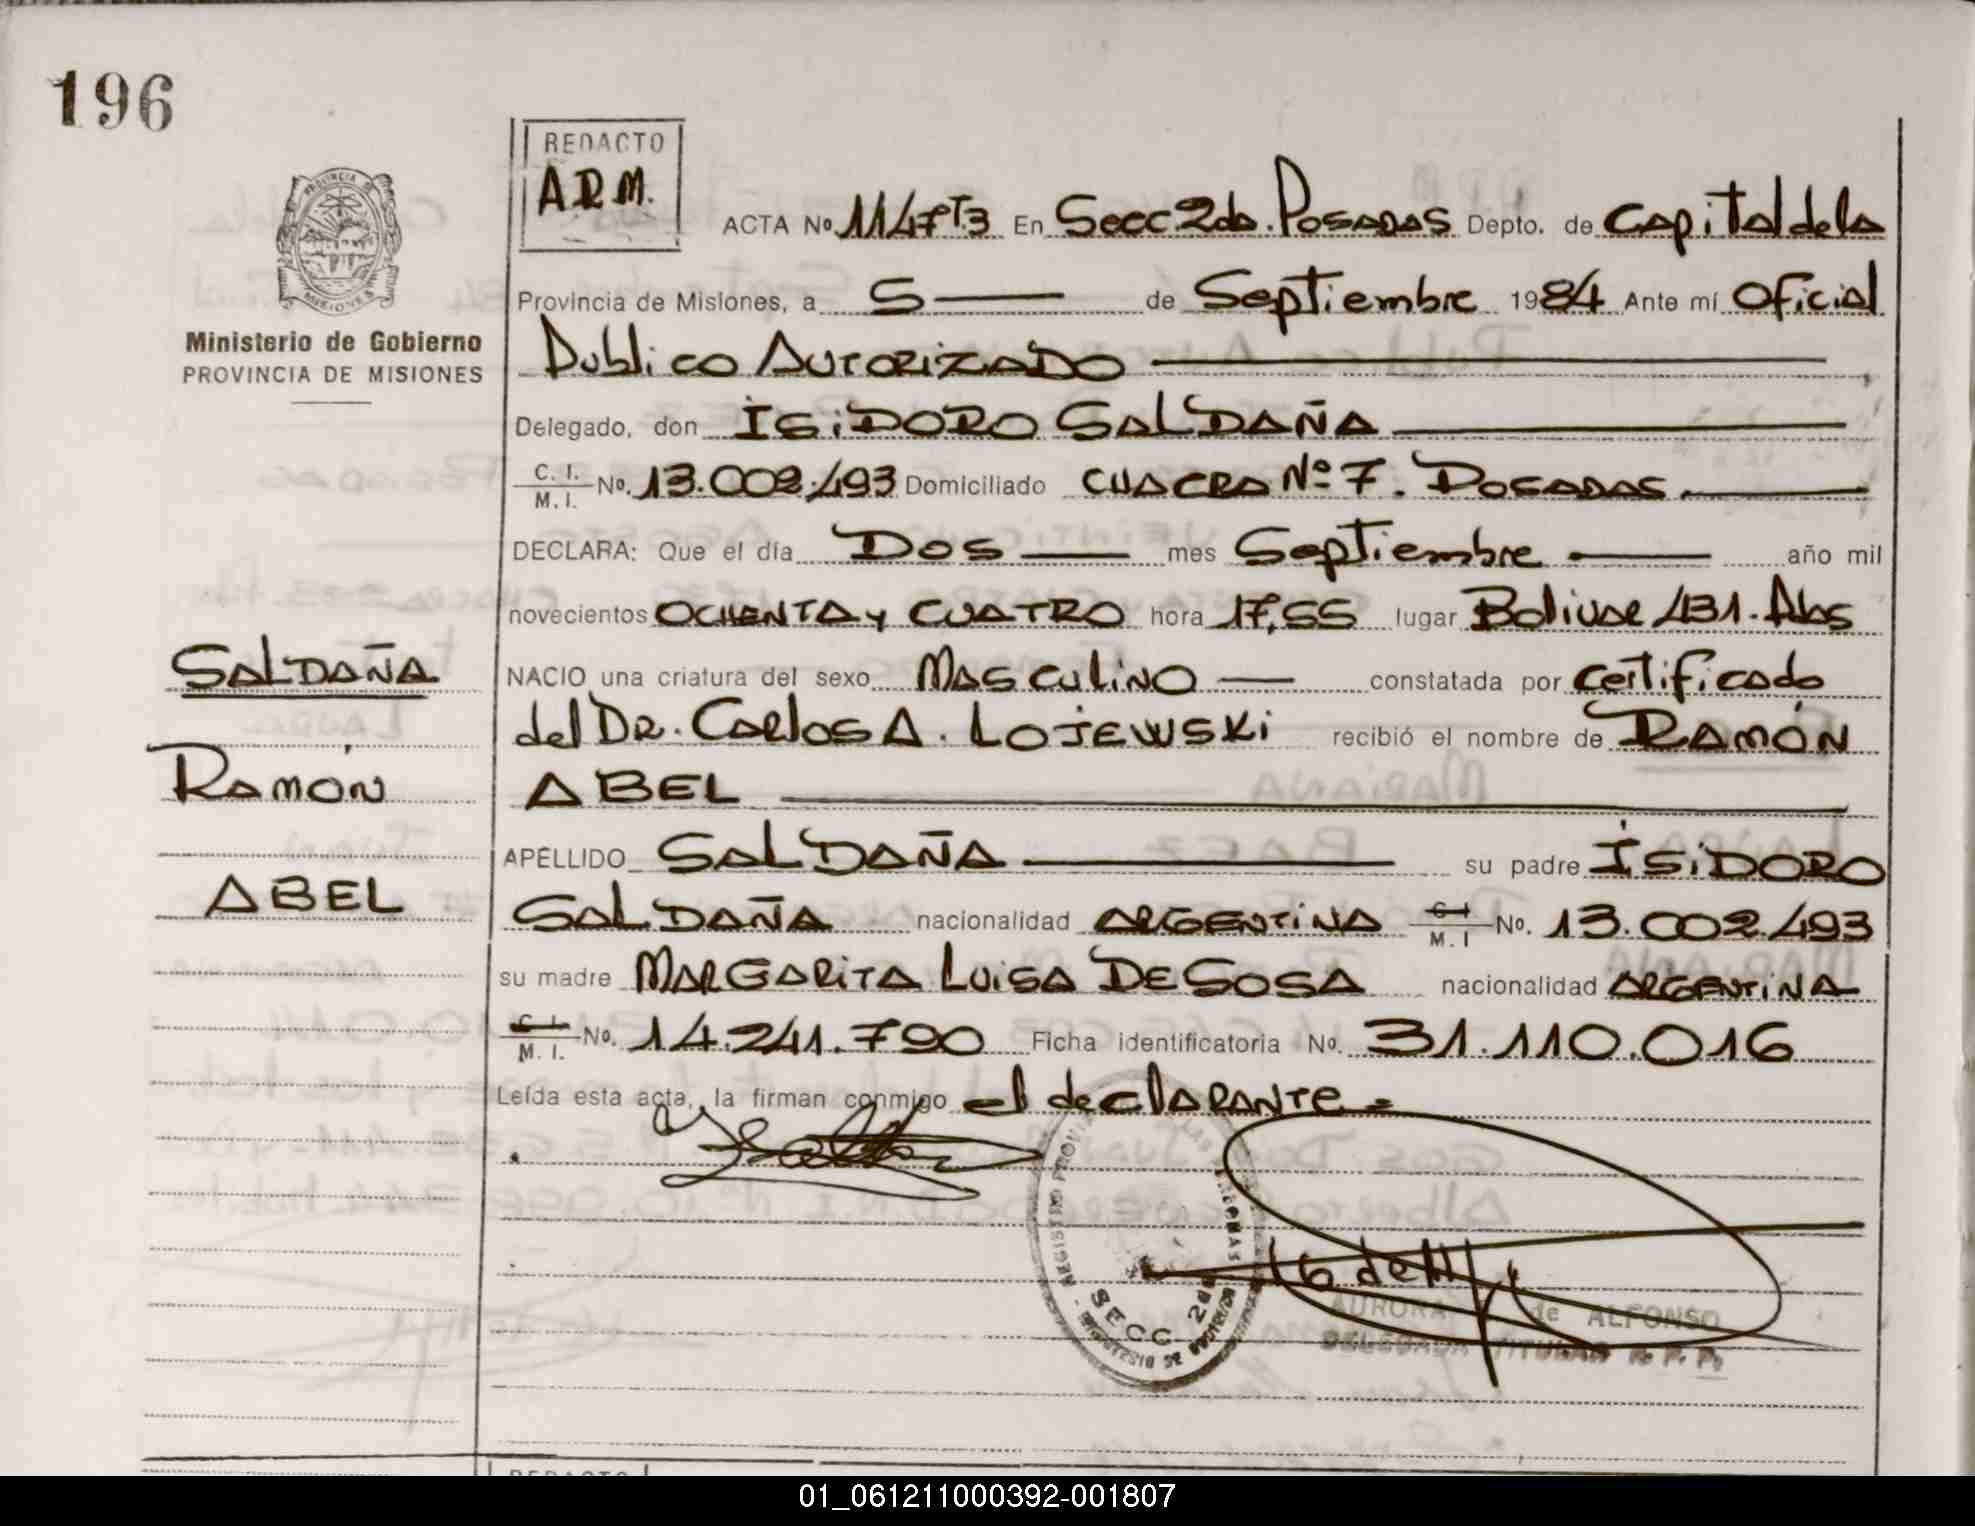 196
REDACTO
A.R.M.
PROVINCIA DE
MISIONES
Ministerio de Gobierno
PROVINCIA DE MISIONES
ACTA Nº 1147 T.3 En Secc. 2da. Posadas Depto. de Capital de la
Provincia de Misiones, a 5 de Septiembre 1984 Ante mí Oficial
Publico Autorizado
Delegado, don Isidoro Saldaña
C. I. M. I. Nº. 13.002.493 Domiciliado CHACRA Nº 7. Posadas.
DECLARA: Que el día Dos mes Septiembre año mil
novecientos OCHENTA y CUATRO hora 17,55 lugar Bolivar 431. Pdas
NACIO una criatura del sexo Masculino constatada por Certificado
del Dr. Carlos A. Lojewski recibió el nombre de Ramón
ABEL
APELLIDO SALDAÑA su padre Isidoro
SALDAÑA nacionalidad ARGENTINA C I M. I Nº. 13.002.493
su madre MARGARITA LUISA DE SOSA nacionalidad ARGENTINA
C I M. I. Nº. 14.241.790 Ficha identificatoria Nº. 31.110.016
Leída esta acta, la firman conmigo el declarante.=
SALDAÑA
Ramón
ABEL
SECC. 2da
AURORA de ALFONSO
DELEGADA TITULAR R. P. P.
REDACTO
01_061211000392-001807